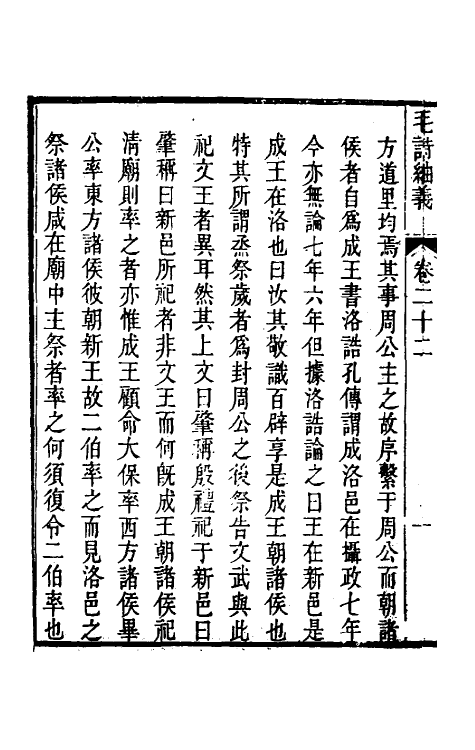 毛詩紬義 卷二十二 一
方道里均焉其事周公主之故序繫于周公而朝諸
侯者自爲成王書洛誥孔傳謂成洛邑在攝政七年
今亦無論七年六年但據洛誥論之曰王在新邑是
成王在洛也曰汝其敬識百辟享是成王朝諸侯也
特其所謂烝祭歲者爲封周公之後祭告文武與此
祀文王者異耳然其上文曰肇稱殷禮祀于新邑曰
肇稱曰新邑所祀者非文王而何旣成王朝諸侯祀
清廟則率之者亦惟成王顧命大保率西方諸侯畢
公率東方諸侯彼朝新王故二伯率之而見洛邑之
祭諸侯咸在廟中主祭者率之何須復令二伯率也